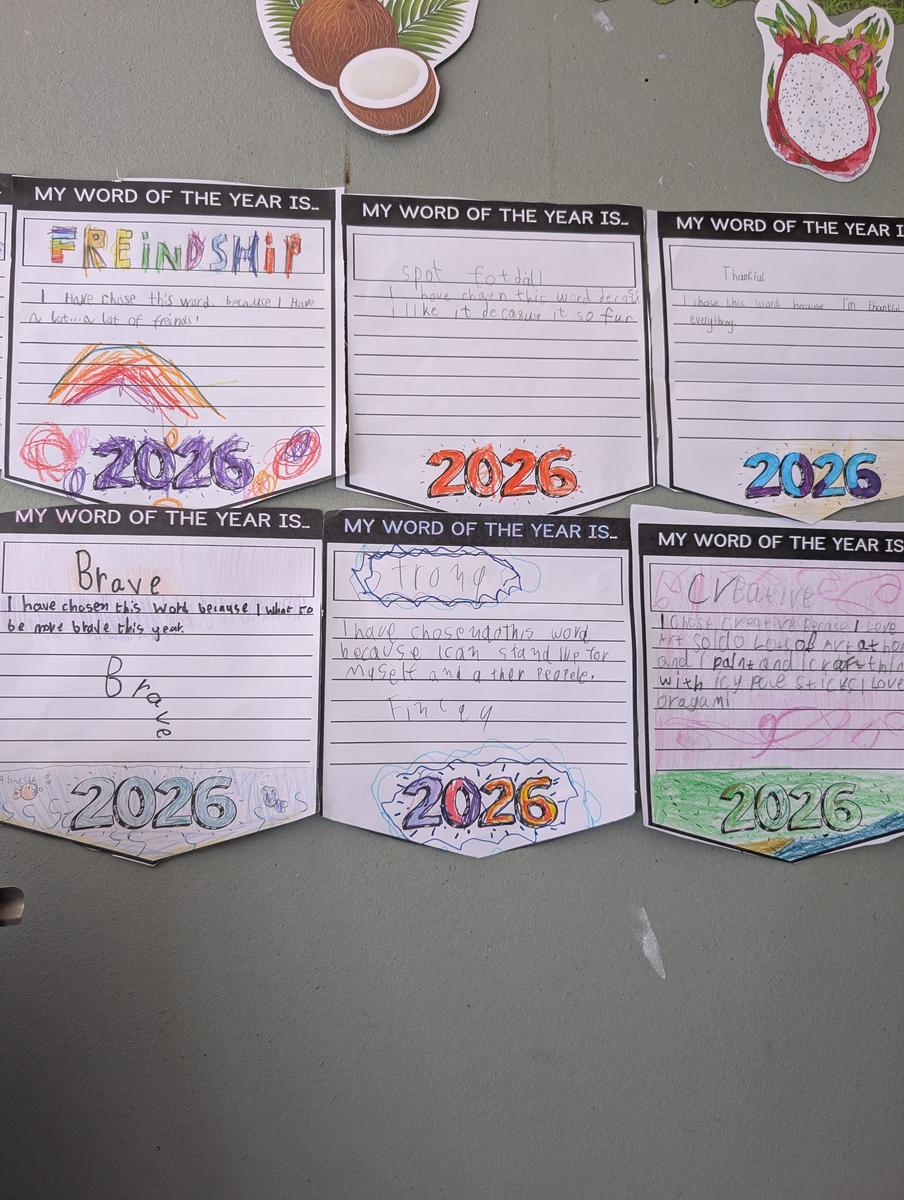 MY WORD OF THE YEAR IS...
FREiNDSHiP
I Have chose this word because I Have
a lot...a lot of freinds!
2026
MY WORD OF THE YEAR IS...
spot fotdall
I have chosen this word decas
i like it decasue it so fun
2026
MY WORD OF THE YEAR I
Thankful
I chose this word because I'm thankful
everything.
2026
MY WORD OF THE YEAR IS...
Brave
I have chosen this word because I what to
be more brave this year.
Brave
2026
MY WORD OF THE YEAR IS...
Strong
I have chosen this word
because I can stand up for
Myself and other People.
2026
MY WORD OF THE YEAR IS
Creative
I chose creative Because I Love
Art so I do Lots of Art at ho
and I paint and I craft thin
with icy pole sticks I Love
oragami
2026